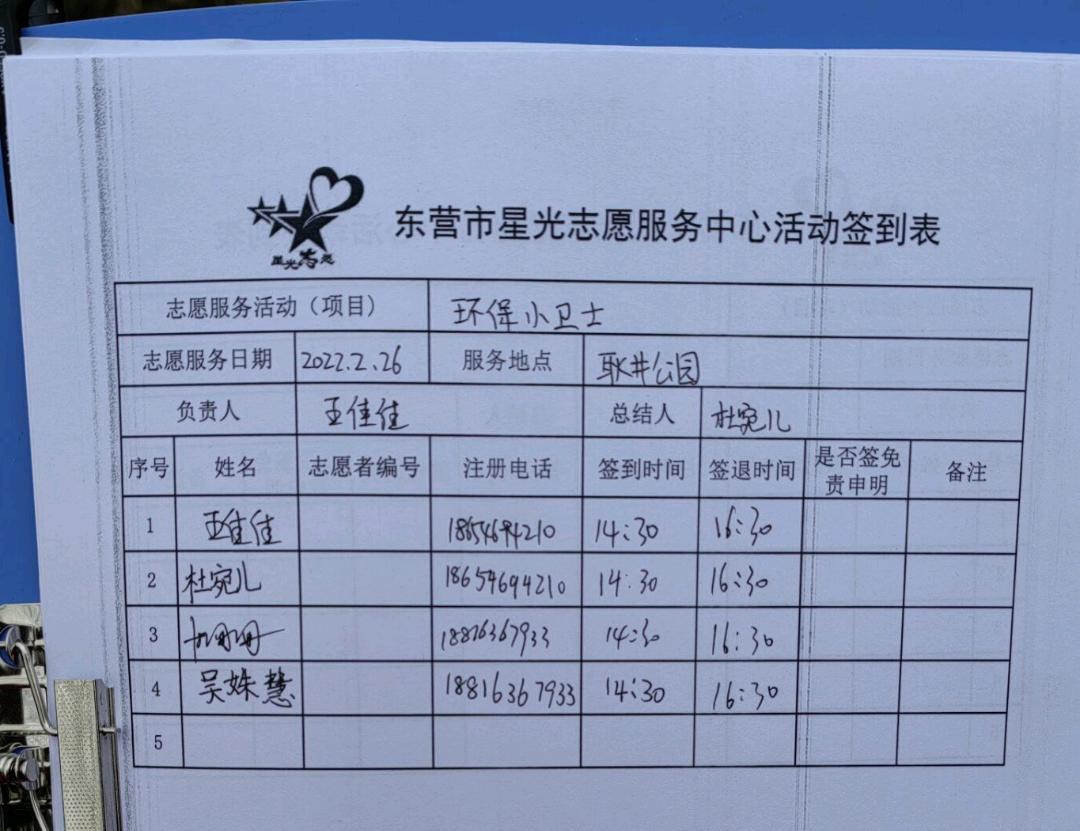 星光志愿
东营市星光志愿服务中心活动签到表
志愿服务活动（项目） 环保小卫士
志愿服务日期 2022.2.26 服务地点 耿井公园
负责人 王佳佳 总结人 杜宛儿
序号 姓名 志愿者编号 注册电话 签到时间 签退时间 是否签免责申明 备注
1 王佳佳 18654694210 14:30 16:30
2 杜宛儿 18654694210 14:30 16:30
3 18816367933 14:30 16:30
4 吴姝慧 18816367933 14:30 16:30
5